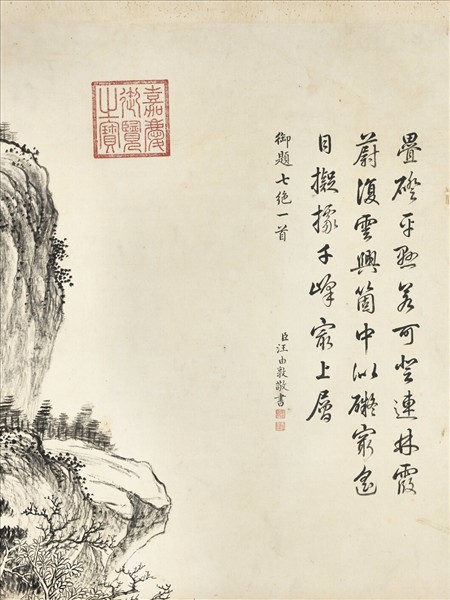 嘉慶
御覽
之寶
疊磴平臨若可登連林霞
蔚復雲興箇中似礙窮遙
目擬據千峰最上層
御題七絕一首
臣汪由敦敬書